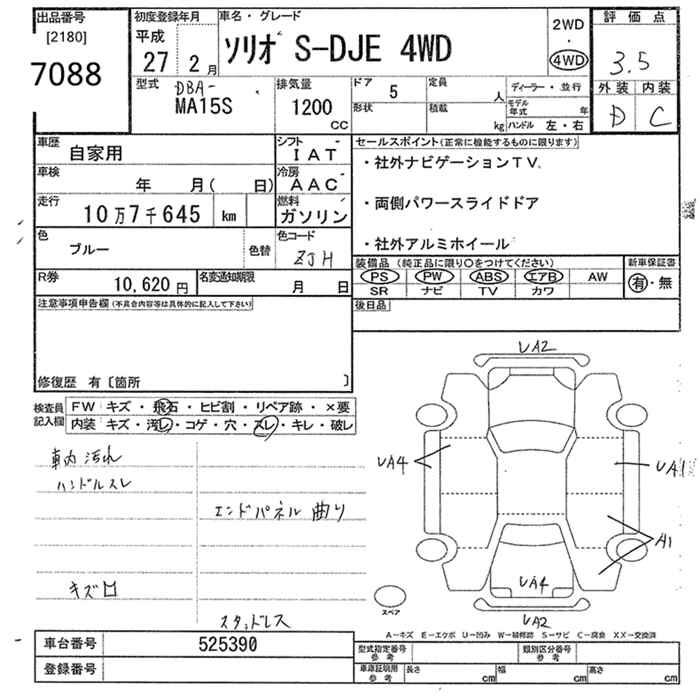 出品番号
[2180]
7088
初度登録年月
平成
27年 2月
車名・グレード
ソリオ S-DJE 4WD
2WD
・
4WD
評価点
3.5
外装 内装
D C
型式
DBA-
MA15S
排気量
1200
CC
ドア 5
形状
定員 人
積載 kg
ディーラー・並行
モデル年式 年
ハンドル 左・右
車歴
自家用
シフト
IAT
車検
年 月( 日)
冷房
AAC
走行
10万7千645 km
燃料
ガソリン
色
ブルー
色替
色コード
ZJH
R券
10,620円
名変通知期限
月 日
セールスポイント(正常に機能するものに限ります)
・社外ナビゲーションTV
・両側パワースライドドア
・社外アルミホイール
装備品(純正品に限り○をつけてください)
PS PW ABS エアB AW
SR ナビ TV カワ
新車保証書
有・無
後日品
注意事項申告欄(不具合内容等は具体的に記入して下さい)
修復歴 有〔箇所 〕
検査員
記入欄
FW キズ・飛石・ヒビ割・リペア跡・×要
内装 キズ・汚レ・コゲ・穴・スレ・キレ・破レ
車内汚れ
ハンドルスレ
エンドパネル曲り
キズ凹
スタッドレス
UA2
UA4
UA1
A1
UA4
UA2
スペア
A-キズ E-エクボ U-凹み W-補修跡 S-サビ C-腐食 XX-交換済
車台番号 525390
登録番号
型式指定番号
参考
類別区分番号
参考
車庫証明用
参考
長さ cm
幅 cm
高さ cm